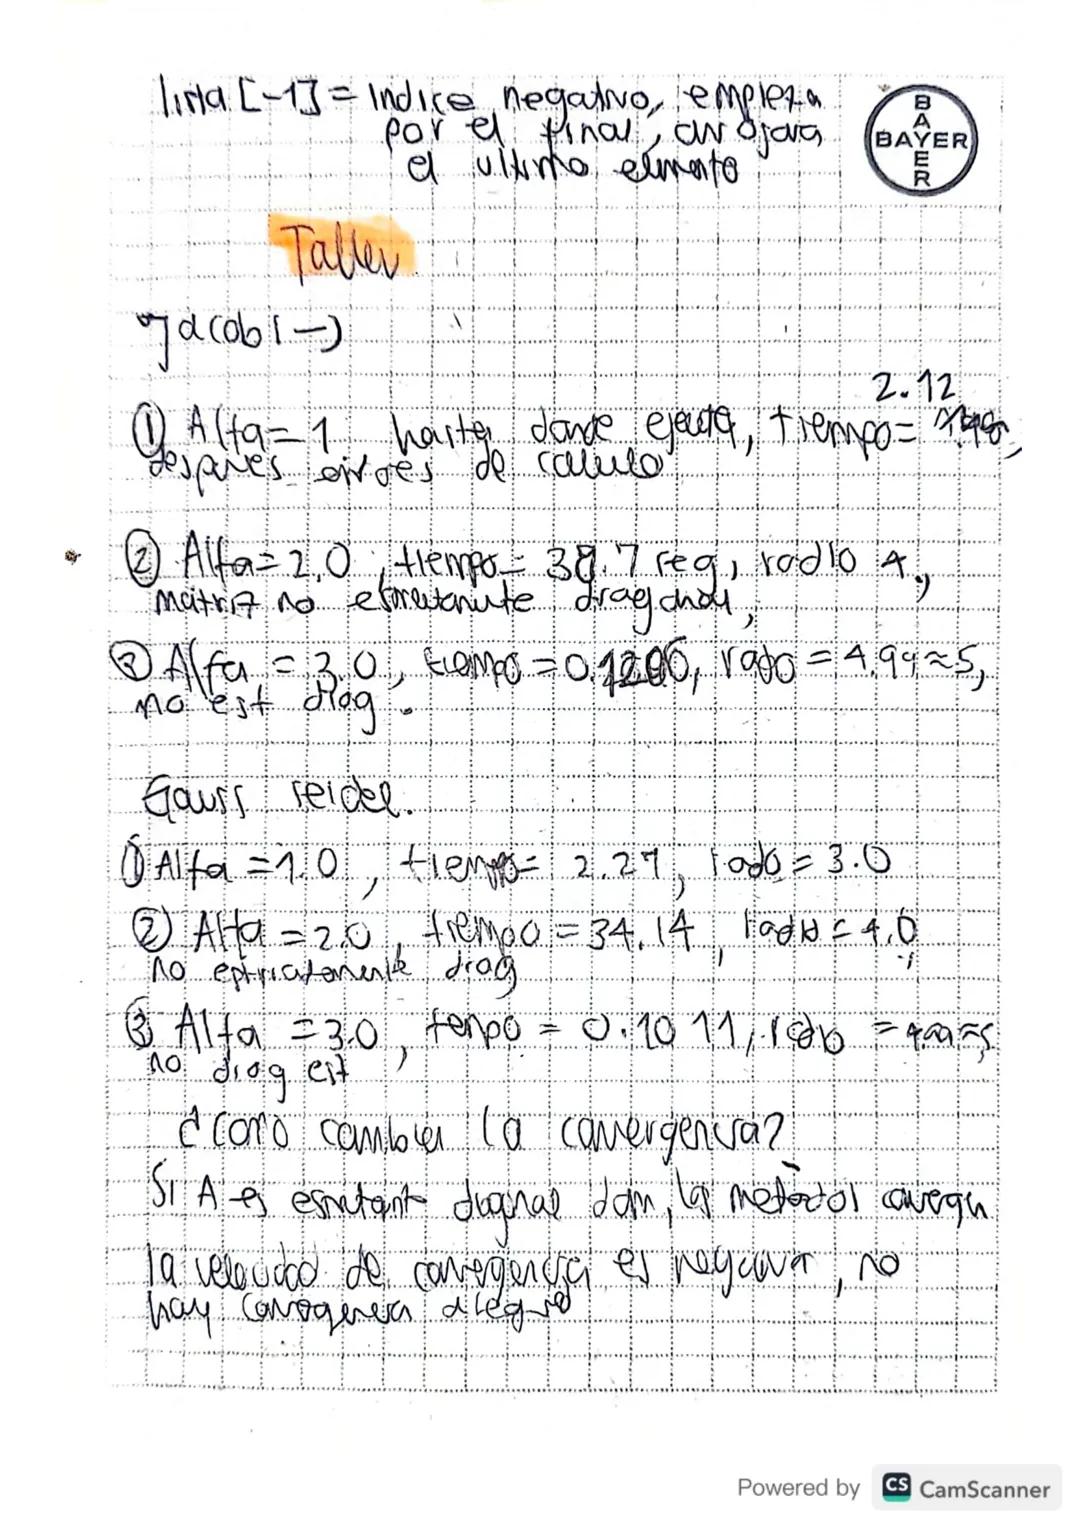 lista [-1] = Indice negativo, empieza
por el final, arrojara
el ultimo elmento
BAYER
BAYER
Taller
Jacobi →
2.12
① Alfa = 1 hasta donde ejecuta, tiempo =
despues errores de calculo
② Alfa = 2,0, tiempo = 38.7 seg, radio 4,
matriz no estrictamente diagonal,
③ Alfa = 3.0, tiempo = 0.1206, radio = 4.99 ≈ 5,
no est diag.
Gauss seidel.
① Alfa = 1.0, tiempo = 2.27, radio = 3.0
② Alfa = 2.0, tiempo = 34.14, radio = 4.0
no estrictamente diag
③ Alfa = 3.0, tempo = 0.1011, radio = 4.99 ≈ 5
no diag est
¿Como cambia la convergencia?
Si A es estrictant diagnal dom, los metodos convergn
la velocidad de convergencia es negativa, no
hay convergencia
Powered by CS CamScanner